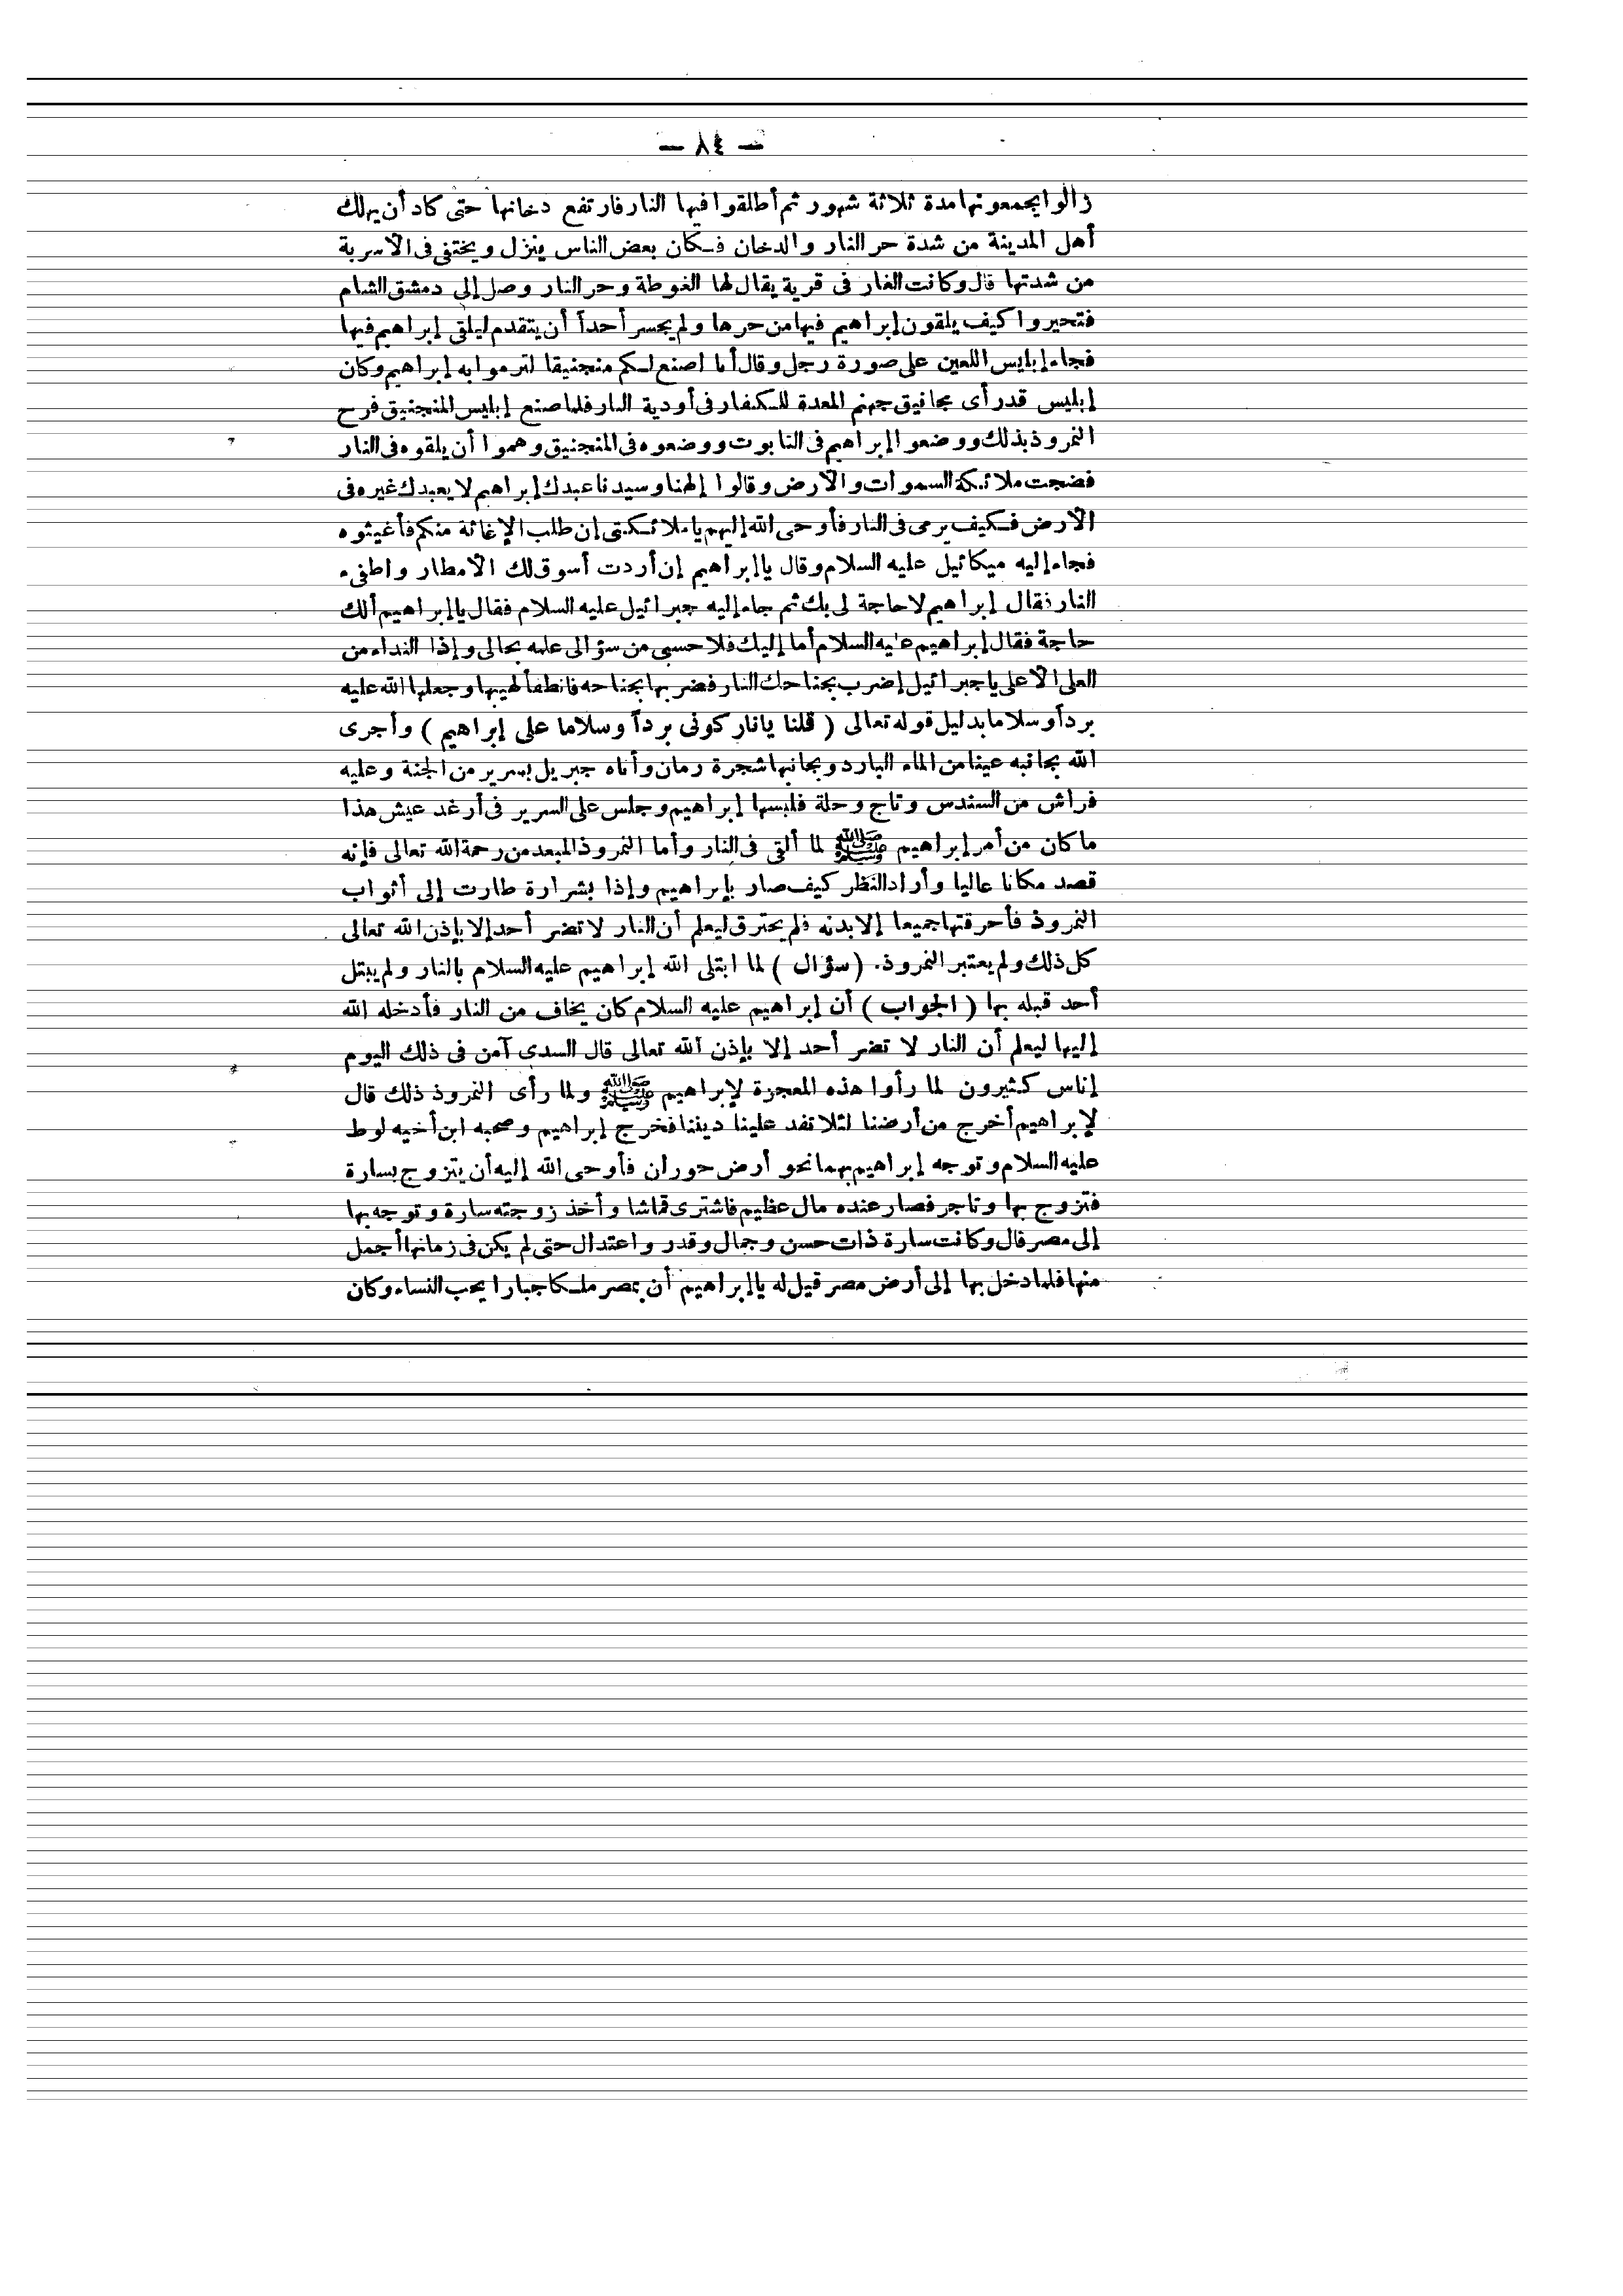 — ٨٤ —
زالوا يجمعونها مدة ثلاثة شهور ثم أطلقوا فيها النار فارتفع دخانها حتى كاد أن يهلك
أهل المدينة من شدة حر النار والدخان فكان بعض الناس ينزل ويختفى فى الأسربة
من شدتها قال وكانت الغار فى قرية يقال لها الغوطة وحر النار وصل إلى دمشق الشام
فتحيروا كيف يلقون إبراهيم فيها من حرها ولم يجسر أحداً أن يتقدم ليلقى إبراهيم فيها
فجاء إبليس اللعين على صورة رجل وقال أنا اصنع لكم منجنيقا لترموا به إبراهيم وكان
إبليس قد رأى مجانيق جهنم المعدة للكفار فى أودية النار فلما صنع إبليس المنجنيق فرح
النمروذ بذلك ووضعوا إبراهيم فى التابوت ووضعوه فى المنجنيق وهموا أن يلقوه فى النار
فضجت ملائكة السموات والأرض وقالوا إلهنا وسيدنا عبدك إبراهيم لا يعبدك غيره فى
الأرض فكيف يرمى فى النار فأوحى الله إليهم يا ملائكتى إن طلب الإغاثة منكم فأغيثوه
فجاء إليه ميكائيل عليه السلام وقال يا إبراهيم إن أردت أسوق لك الأمطار واطفىء
النار فقال إبراهيم لا حاجة لى بك ثم جاء إليه جبرائيل عليه السلام فقال يا إبراهيم ألك
حاجة فقال إبراهيم عليه السلام أما إليك فلا حسبى من سؤالى علمه بحالى وإذا النداء من
العلى الأعلى يا جبرائيل إضرب بجناحك النار فضربها بجناحه فانطفأ لهيبها وجعلها الله عليه
برداً وسلاما بدليل قوله تعالى ( قلنا يا نار كونى برداً وسلاما على إبراهيم ) وأجرى
الله بجانبه عينا من الماء البارد وبجانبها شجرة رمان وأتاه جبريل بسرير من الجنة وعليه
فراش من السندس وتاج وحلة فلبسها إبراهيم وجلس على السرير فى أرغد عيش هذا
ما كان من أمر إبراهيم ﷺ لما ألقى فى النار وأما النمروذ المبعد من رحمة الله تعالى فإنه
قصد مكانا عاليا وأراد النظر كيف صار بإبراهيم وإذا بشرارة طارت إلى أثواب
النمروذ فأحرقتها جميعا إلا بدنه فلم يحترق ليعلم أن النار لا تضر أحد إلا بإذن الله تعالى
كل ذلك ولم يعتبر النمروذ. (سؤال ) لما ابتلى الله إبراهيم عليه السلام بالنار ولم يبتل
أحد قبله بها ( الجواب ) أن إبراهيم عليه السلام كان يخاف من النار فأدخله الله
إليها ليعلم أن النار لا تضر أحد إلا بإذن الله تعالى قال السدى آمن فى ذلك اليوم
إناس كثيرون لما رأوا هذه المعجزة لإبراهيم ﷺ ولما رأى النمروذ ذلك قال
لإبراهيم أخرج من أرضنا لئلا تفد علينا ديننا فخرج إبراهيم وصحبه ابن أخيه لوط
عليه السلام وتوجه إبراهيم بهما نحو أرض حوران فأوحى الله إليه أن يتزوج بسارة
فتزوج بها وتاجر فصار عنده مال عظيم فاشترى قماشا وأخذ زوجته سارة وتوجه بها
إلى مصر قال وكانت سارة ذات حسن وجمال وقدر واعتدال حتى لم يكن فى زمانها أجمل
منها فلما دخل بها إلى أرض مصر قيل له يا إبراهيم أن بمصر ملكا جبارا يحب النساء وكان